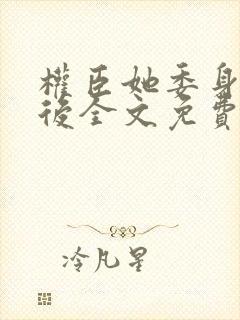 權臣她委身
後全文免費
冷凡星